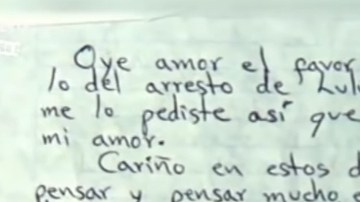 Oye amor el favor
lo del arresto de Lul
me lo pediste así que
mi amor.
Cariño en estos d
pensar y pensar mucho